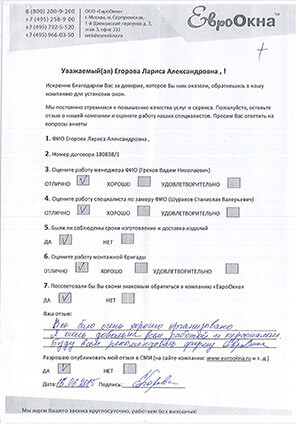 8 (800) 200-9-200
+7 (495) 258-9-00
+7 (495) 792-5-520
+7 (495) 966-03-50
ООО «ЕвроОкна»
г. Москва, м. Серпуховская,
1-й Щипковский переулок д. 3,
этаж 3, офис 332
web@eurookna.ru
ЕвроОкна
Уважаемый(ая) Егорова Лариса Александровна , !
Искренне благодарим Вас за доверие, которое Вы нам оказали, обратившись в нашу
компанию для установки окон.
Мы постоянно стремимся к повышению качества услуг и сервиса. Пожалуйста, оставьте
отзыв о нашей компании и оцените работу наших специалистов. Просим Вас ответить на
вопросы анкеты
1. ФИО Егорова Лариса Александровна ,
2. Номер договора 180838/1
3. Оцените работу менеджера ФИО (Грехов Вадим Николаевич)
ОТЛИЧНО ХОРОШО УДОВЛЕТВОРИТЕЛЬНО
4. Оцените работу специалиста по замеру ФИО (Шураков Станислав Валерьевич)
ОТЛИЧНО ХОРОШО УДОВЛЕТВОРИТЕЛЬНО
5. Были ли соблюдены сроки изготовления и доставки изделий
ДА НЕТ
6. Оцените работу монтажной бригады
ОТЛИЧНО ХОРОШО УДОВЛЕТВОРИТЕЛЬНО
7. Посоветовали бы Вы своим знакомым обратиться в компанию «ЕвроОкна»
ДА НЕТ
Ваш отзыв:
Все было очень хорошо организовано
Я очень довольна всем работой и персоналом.
Буду всем рекомендовать фирму Евроокна
Разрешаю опубликовать мой отзыв в СМИ (на сайте компании: www.eurookna.ru и т. д.)
ДА НЕТ
Дата: 2015 Подпись: Егорова
Мы ждем Вашего звонка круглосуточно, работаем без выходных!